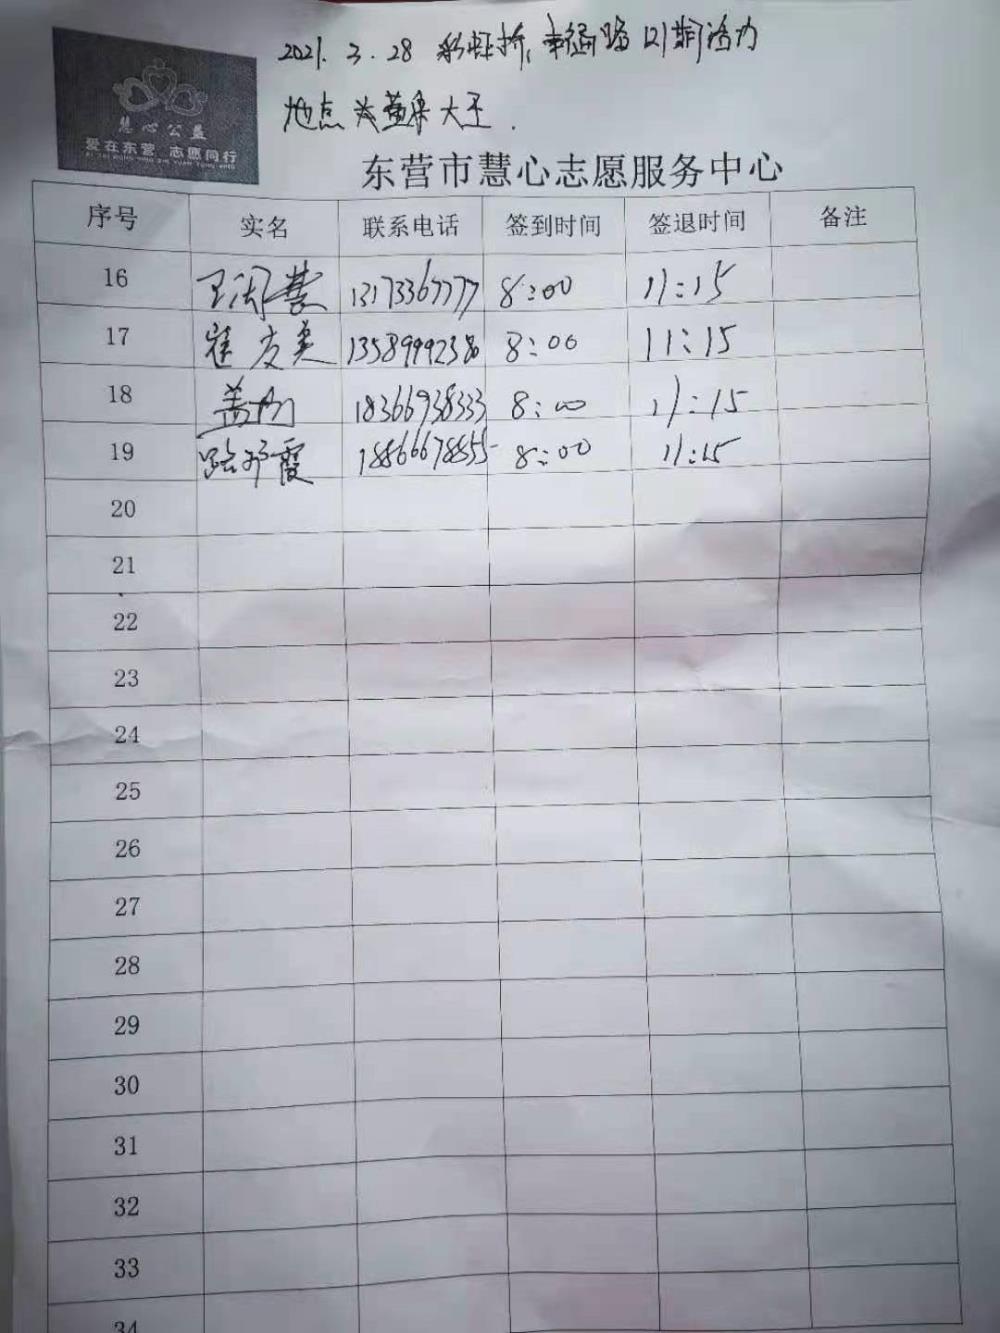 2021. 3. 28 彩虹桥, 幸福路 口 期 活力
地点 大 大王.
慧心公益
爱在东营 志愿同行
东营市慧心志愿服务中心
序号 实名 联系电话 签到时间 签退时间 备注
16 王 慧 13173367777 8:00 11:15
17 崔友美 13589992386 8:00 11:15
18 盖 18366938333 8:00 11:15
19 路 霞 18866678855 8:00 11:15
20
21
22
23
24
25
26
27
28
29
30
31
32
33
34